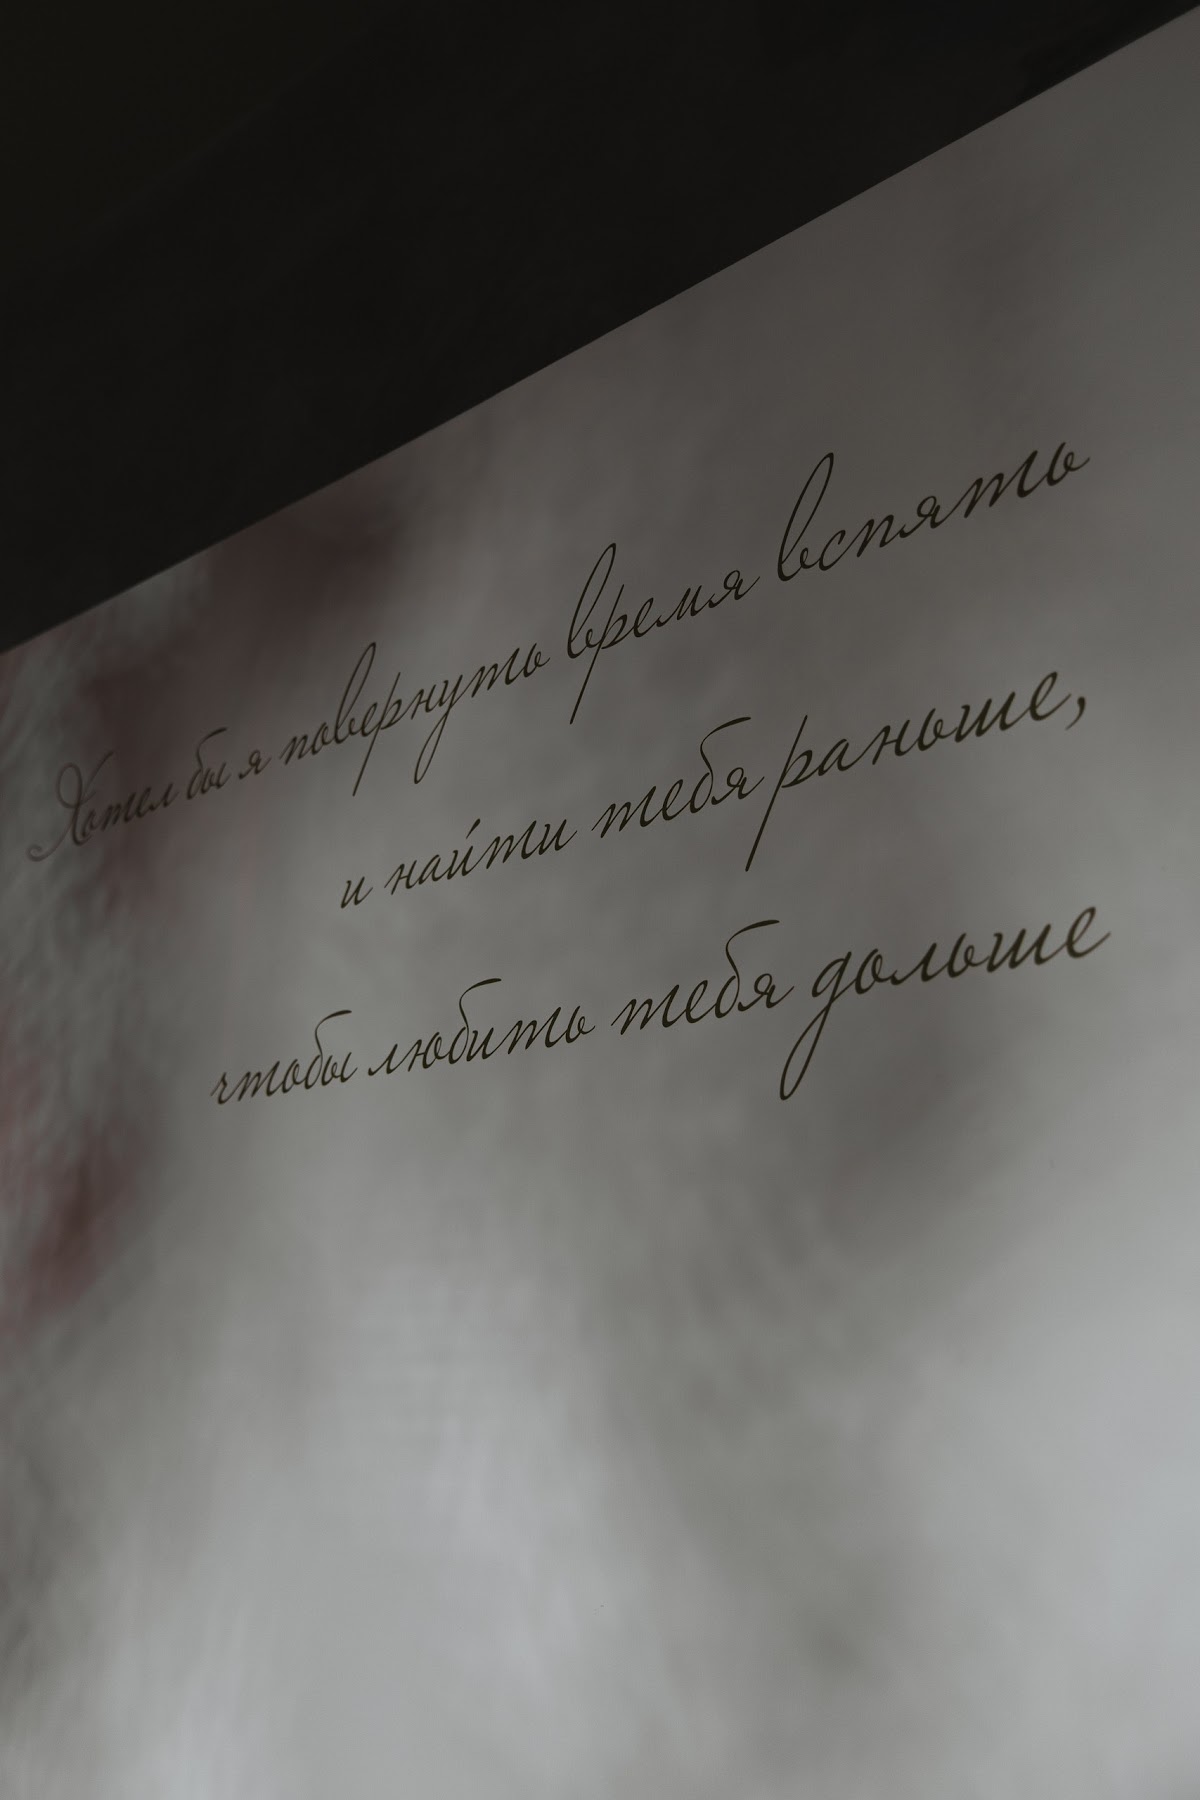 Хотел бы я повернуть время вспять
и найти тебя раньше,
чтобы любить тебя дольше